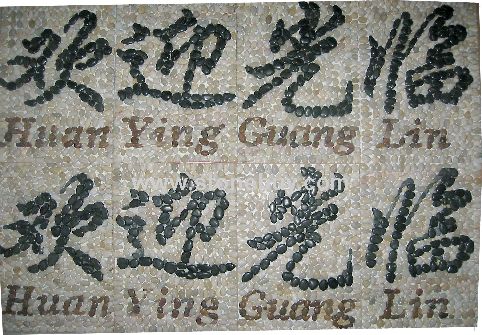 欢迎光临
Huan Ying Guang Lin
欢迎光临
Huan Ying Guang Lin